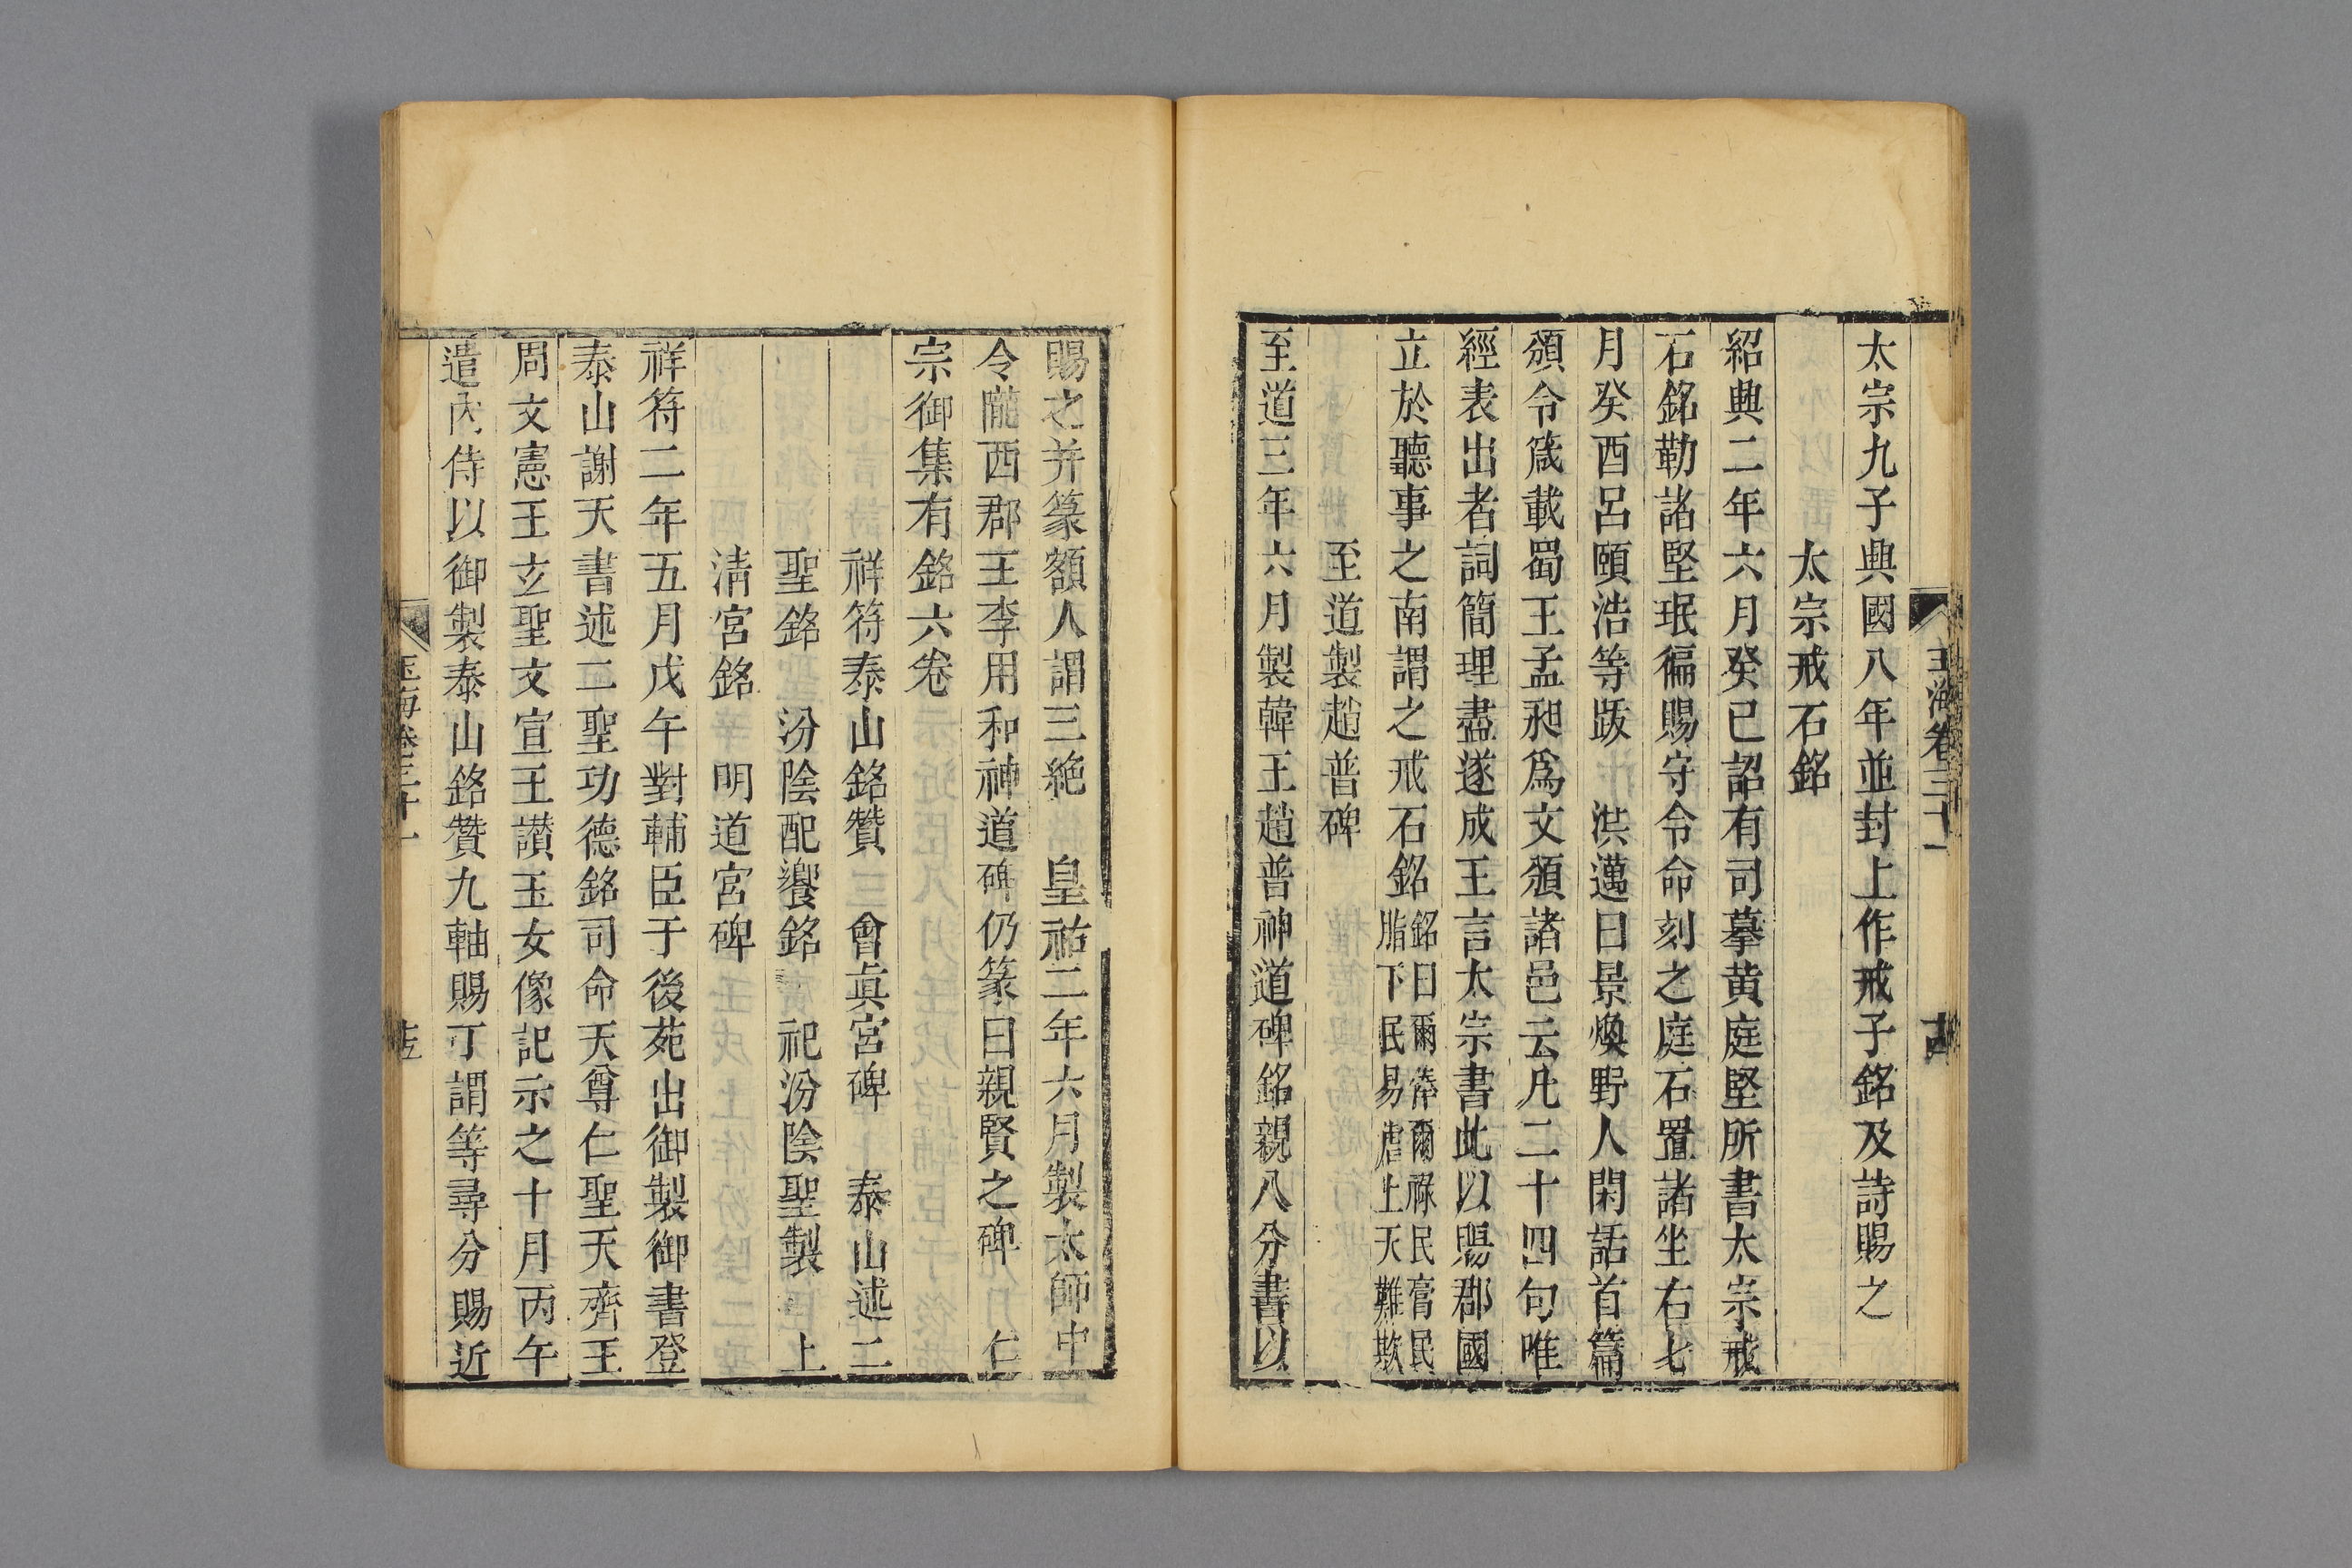 玉海卷三十一
太宗九子興國八年並封上作戒子銘及詩賜之
太宗戒石銘
紹興二年六月癸巳詔有司摹黄庭堅所書太宗戒
石銘勒諸堅珉徧賜守令命刻之庭石置諸坐右七
月癸酉呂頤浩等䟦 洪邁曰景煥野人閑話首篇
頒令箴載蜀王孟昶爲文頒諸邑云凡二十四句唯
經表出者詞簡理盡遂成王言太宗書此以賜郡國
立於聽事之南謂之戒石銘銘曰爾俸爾祿民膏民
脂下民易虐上天難欺
至道製趙普碑
至道三年六月製韓王趙普神道碑銘親八分書以
賜之并篆額人謂三絶 皇祐二年六月製太師中
令隴西郡王李用和神道碑仍篆曰親賢之碑 仁
宗御集有銘六卷
祥符泰山銘贊 會眞宮碑 泰山述二
聖銘 汾陰配饗銘 祀汾陰聖製 上
淸宮銘 明道宮碑
祥符二年五月戊午對輔臣于後苑出御製御書登
泰山謝天書述二聖功德銘司命天尊仁聖天齊王
周文憲王玄聖文宣王讃玉女像記示之十月丙午
遣內侍以御製泰山銘贊九軸賜丁謂等尋分賜近
玉海卷三十一